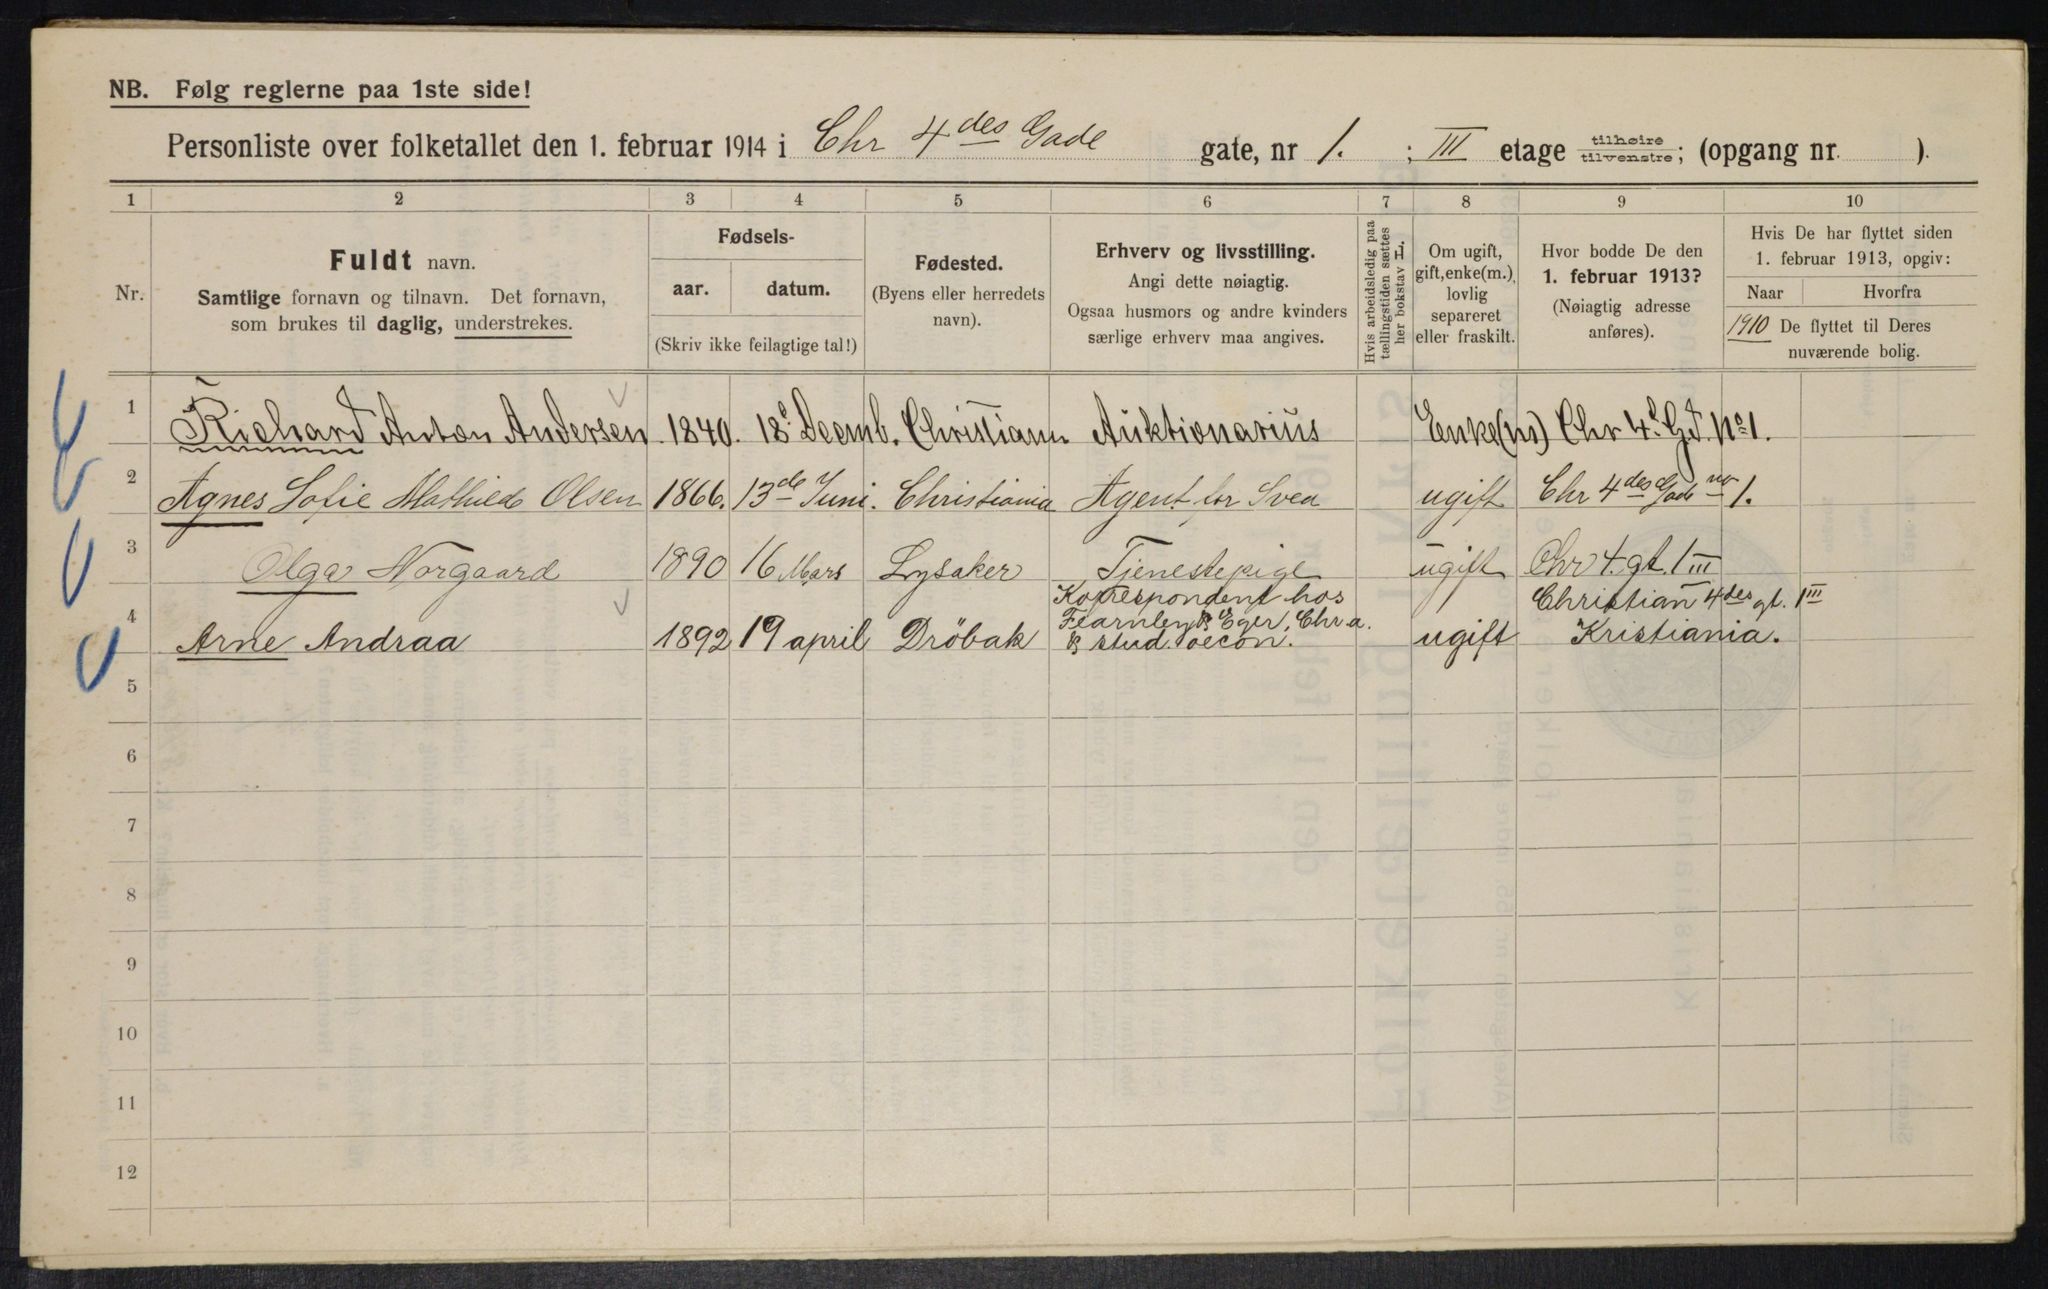 NB. Følg reglerne paa 1ste side!
Personliste over folketallet den 1. februar 1914 i Chr 4des Gade gate, nr 1. ; III etage tilhøire/tilvenstre; (opgang nr. ).
1 2 3 4 5 6 7 8 9 10
Nr.
Fuldt navn.
Samtlige fornavn og tilnavn. Det fornavn,
som brukes til daglig, understrekes.
Fødsels-
aar. datum.
(Skriv ikke feilagtige tal!)
Fødested.
(Byens eller herredets
navn).
Erhverv og livsstilling.
Angi dette nøiagtig.
Ogsaa husmors og andre kvinders
særlige erhverv maa angives.
Hvis arbeidsledig paa
tællingstiden sættes
her bokstav L.
Om ugift,
gift, enke(m.),
lovlig
separeret
eller fraskilt.
Hvor bodde De den
1. februar 1913?
(Nøiagtig adresse
anføres).
Hvis De har flyttet siden
1. februar 1913, opgiv:
Naar Hvorfra
1910 De flyttet til Deres
nuværende bolig.
1 Richard Anton Andersen 1840. 18d Decmb. Christiann Auktionarius Enke(m) Chr 4d Gd. No 1.
2 Agnes Sofie Mathilde Olsen 1866. 13de Juni. Christiania Agent for Svea ugift Chr 4des Gade no 1.
3 Olga Norgaard 1890 16 Mars Lysaker Tjenestepige ugift Chr 4. gt. 1 III
4 Arne Andraa 1892 19 april Dröbak Korrespondent hos
Fearnley & Eger, Chr.a.
& stud. oecon. ugift Christian 4des gt. 1 III
Kristiania.
5
6
7
8
9
10
11
12